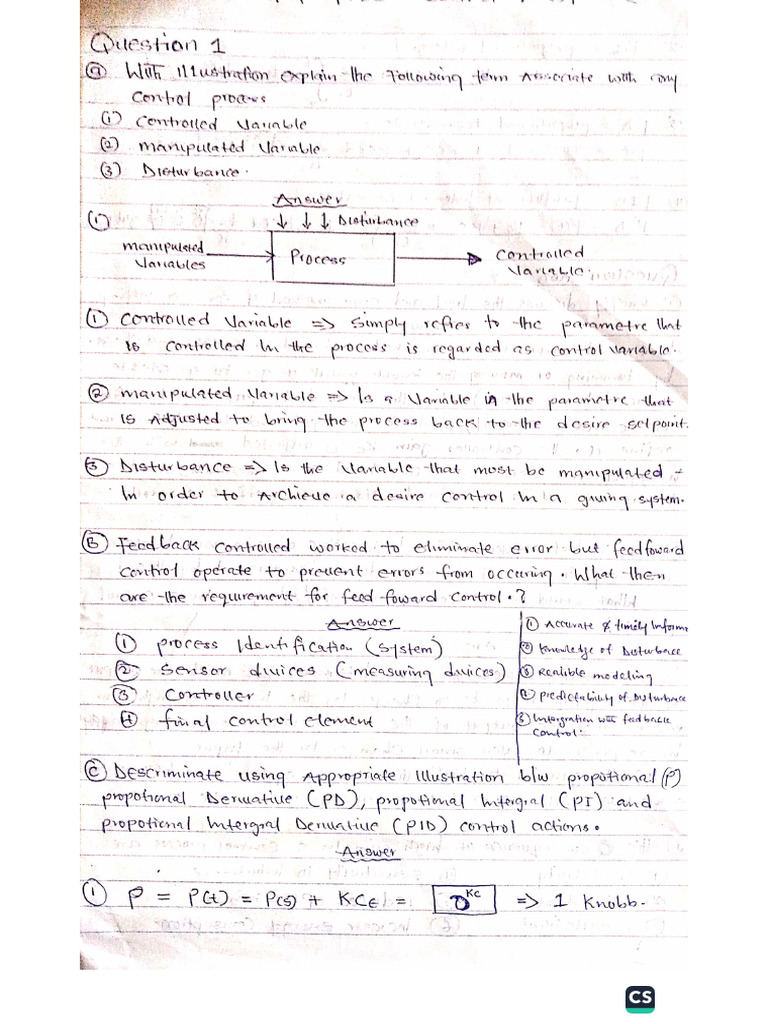 Question 1
(a) With illustration explain the following term Associate with any
control process
(1) Controlled Variable
(2) manipulated Variable
(3) Disturbance.
Answer
(1) ↓ ↓ ↓ Disturbance
manipulated Variables → Process → Controlled Variable.
(1) Controlled Variable => Simply refers to the parametre that
is controlled in the process is regarded as control variable.
(2) manipulated Variable => Is a Variable in the parametre that
is Adjusted to bring the process back to the desire setpoint.
(3) Disturbance => Is the Variable that must be manipulated -
In order to Archieve a desire control in a giving system.
(B) Feedback controlled worked to eliminate error but feedfoward
control operate to prevent errors from occuring. What then
are the requirement for feed-foward control.?
Answer
(1) process Identification (system)
(2) Sensor divices (measuring divices)
(3) Controller
(4) final control element
(1) Accurate & timely Informa
(2) Knowledge of Disturbance
(3) Realible modeling
(2) predictability of Disturbance
(3) Intergration with feedback
control.
(C) Descriminate using Appropriate Illustration b/w propotional (P)
propotional Derivative (PD), propotional Intergral (PI) and
propotional Intergral Derivative (PID) control actions.
Answer
(1) P = P(t) = P(s) + KCE = Kc => 1 Knobb.
CS